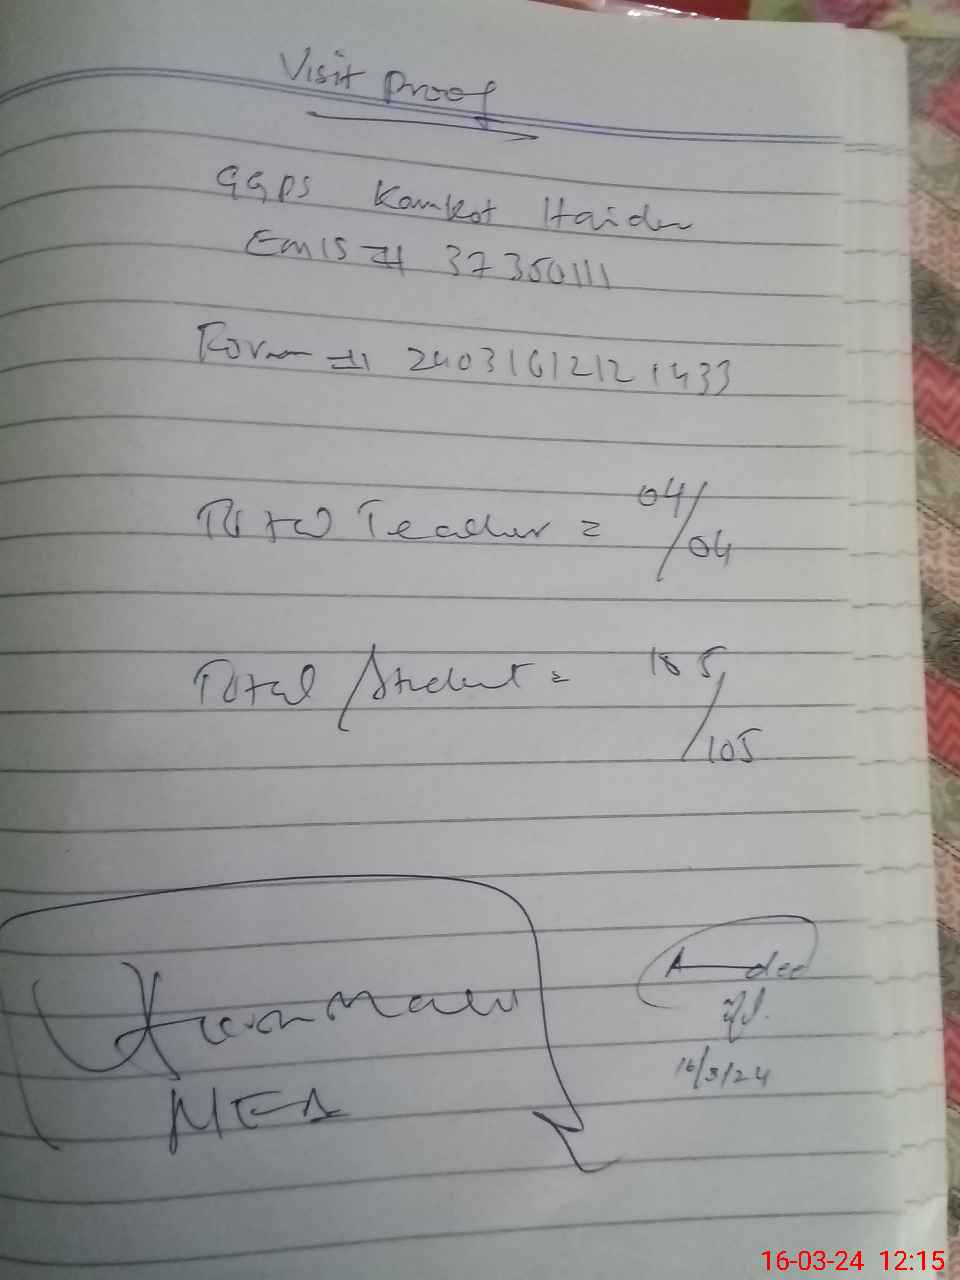 Visit Proof
GGPS Kamkot Haider
Emis # 37350111
# 24031612121433
Total Teacher = 04/04
Total Student = 105/105
MEA
16/3/24
16-03-24 12:15